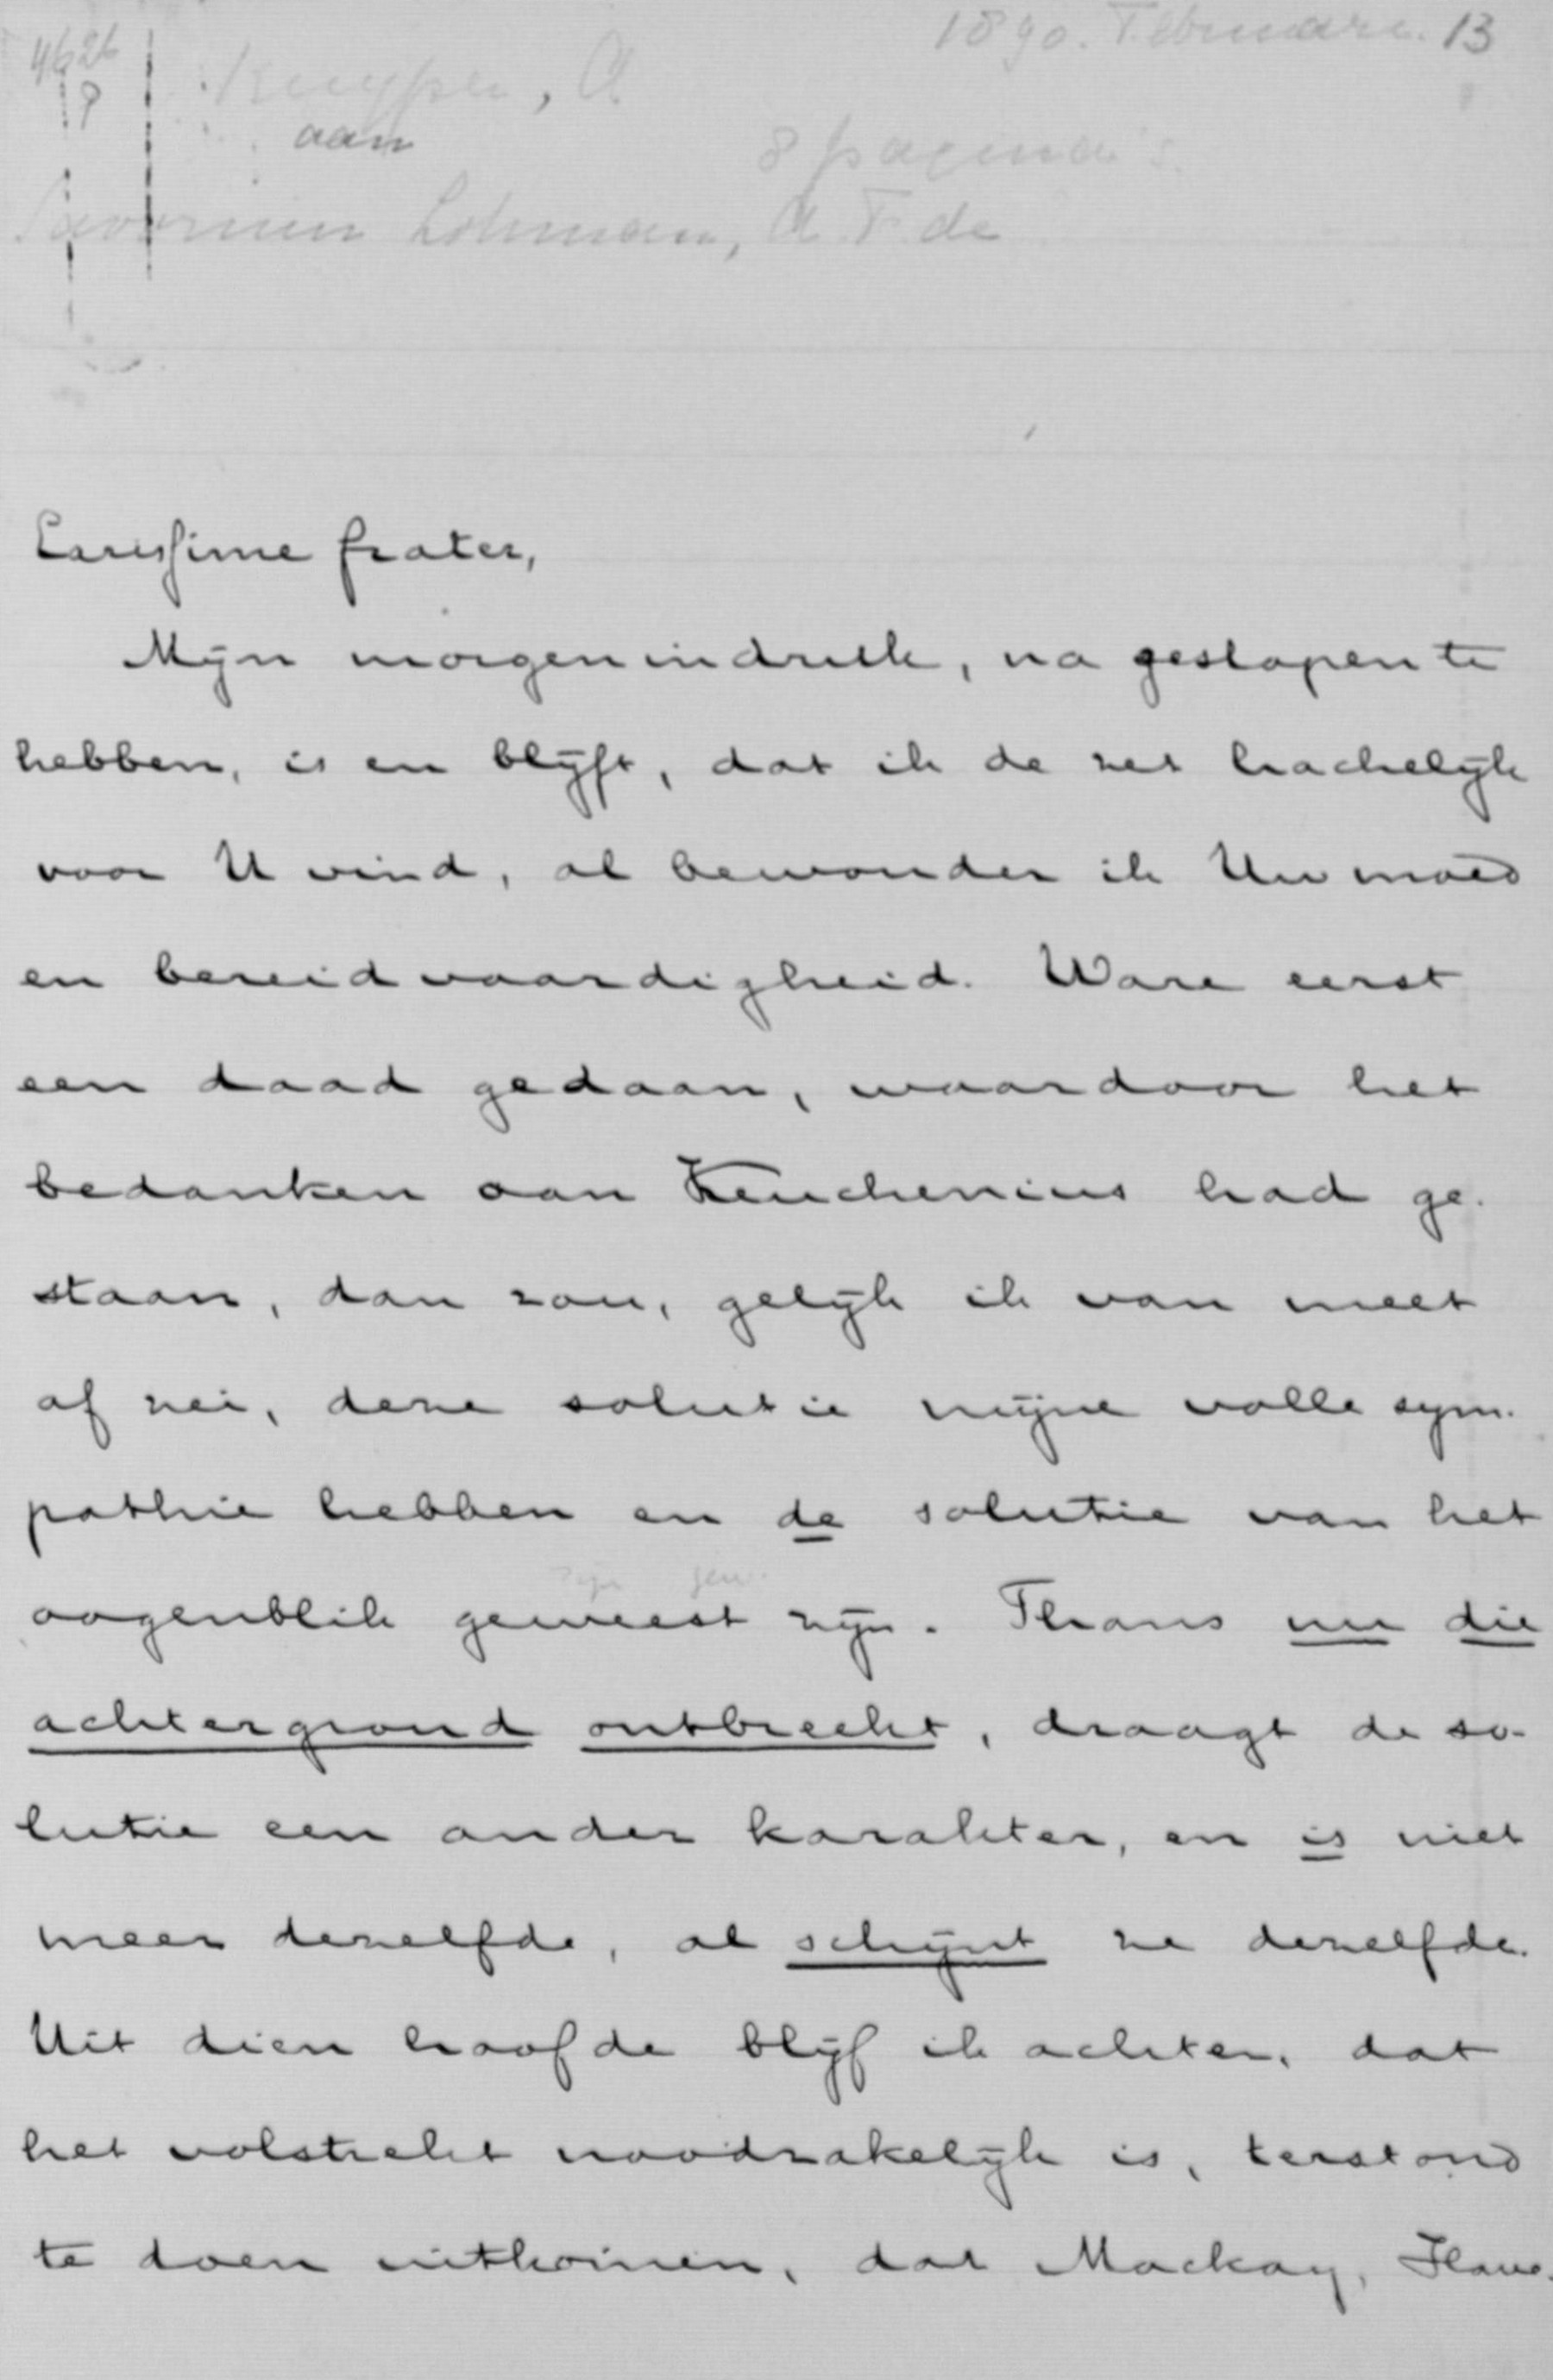 4626
1890. Februari. 13
Kuyper, A.
aan
8 pagina's.
Savornin Lohman, A. F. de
Carissime frater,
Mijn morgenindruk, na geslapen te
hebben, is en blijft, dat ik de zet hachelijk
voor U vind, al bewonder ik Uw moed
en bereidvaardigheid. Ware eerst
een daad gedaan, waardoor het
bedanken aan Keuchenius had ge-
staan, dan zou, gelijk ik van meet
af zei, deze solutie mijne volle sym-
pathie hebben en de solutie van het
oogenblik geweest zijn. Thans nu die
achtergrond ontbreekt, draagt de so-
lutie een ander karakter, en is niet
meer dezelfde, al schijnt ze dezelfde.
Uit dien hoofde blijf ik achten, dat
het volstrekt noodzakelijk is, terstond
te doen uitkomen, dat Mackay, Have-